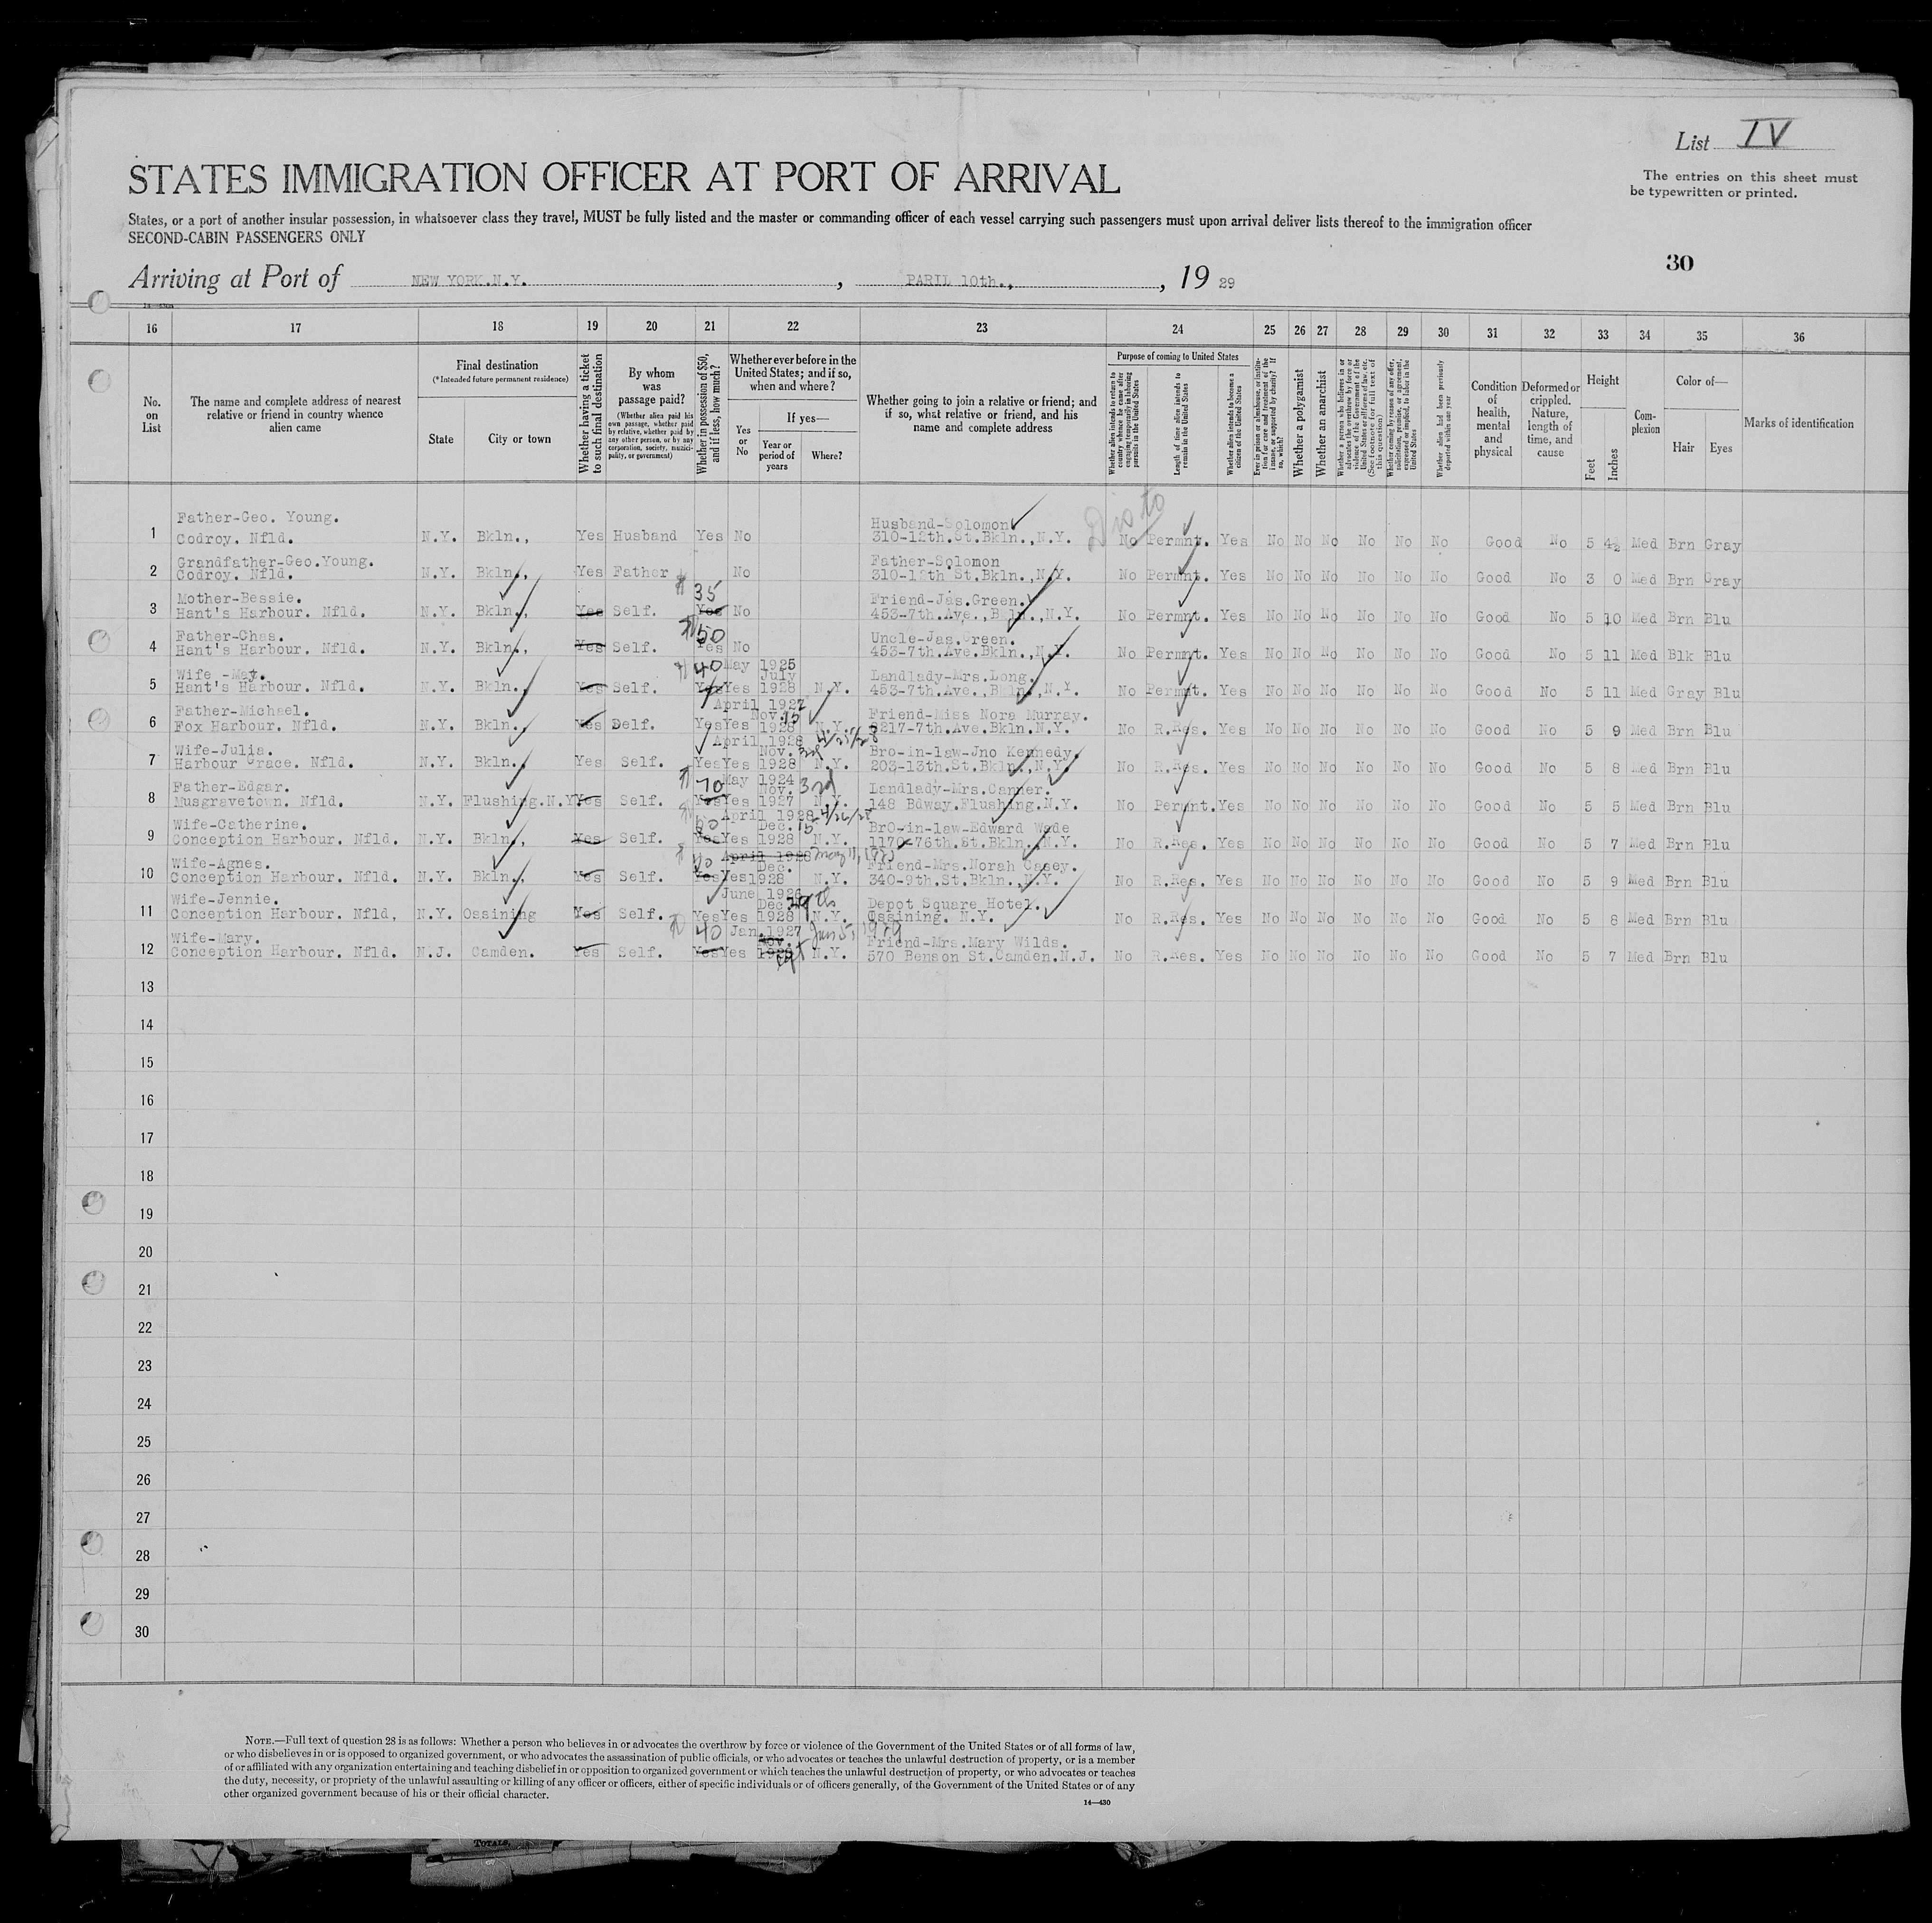 List IV
The entries on this sheet must
be typewritten or printed.
STATES IMMIGRATION OFFICER AT PORT OF ARRIVAL
States, or a port of another insular possession, in whatsoever class they travel, MUST be fully listed and the master or commanding officer of each vessel carrying such passengers must upon arrival deliver lists thereof to the immigration officer
SECOND-CABIN PASSENGERS ONLY
30
Arriving at Port of NEW YORK.N.Y. , PARIL 10th., , 19 29
16 17 18 19 20 21 22 23 24 25 26 27 28 29 30 31 32 33 34 35 36
No. on List
The name and complete address of nearest relative or friend in country whence alien came
Final destination
(*Intended future permanent residence)
State
City or town
Whether having a ticket to such final destination
By whom was passage paid?
(Whether alien paid his own passage, whether paid by relative, whether paid by any other person, or by any corporation, society, municipality, or government)
Whether in possession of $50, and if less, how much?
Whether ever before in the United States; and if so, when and where?
Yes or No
If yes—
Year or period of years
Where?
Whether going to join a relative or friend; and if so, what relative or friend, and his name and complete address
Purpose of coming to United States
Whether alien intends to return to country whence he came after engaging temporarily in laboring pursuits in the United States
Length of time alien intends to remain in the United States
Whether alien intends to become a citizen of the United States
Ever in prison or almshouse, or institution for care and treatment of the insane, or supported by charity? If so, which?
Whether a polygamist
Whether an anarchist
Whether a person who believes in or advocates the overthrow by force or violence of the Government of the United States or all forms of law, etc. (See footnote for full text of this question)
Whether coming by reason of any offer, solicitation, promise, or agreement, expressed or implied, to labor in the United States
Whether alien had been previously deported within one year
Condition of health, mental and physical
Deformed or crippled. Nature, length of time, and cause
Height
Feet
Inches
Complexion
Color of—
Hair
Eyes
Marks of identification
Disto
1 Father-Geo. Young. Codroy. Nfld. N.Y. Bkln., Yes Husband Yes No Husband-Solomon 310-12th.St.Bkln.,N.Y. No Permnt. Yes No No No No No No Good No 5 4½ Med Brn Gray
2 Grandfather-Geo.Young. Codroy. Nfld. N.Y. Bkln., Yes Father No Father-Solomon 310-12th St.Bkln.,N.Y. No Permnt. Yes No No No No No No Good No 3 0 Med Brn Gray
3 Mother-Bessie. Hant's Harbour. Nfld. N.Y. Bkln., Yes Self. $35 Yes No Friend-Jas.Green. 453-7th.Ave.,Bkln.,N.Y. No Permnt. Yes No No No No No No Good No 5 10 Med Brn Blu
4 Father-Chas. Hant's Harbour. Nfld. N.Y. Bkln., Yes Self. $50 Yes No Uncle-Jas.Green. 453-7th.Ave.Bkln.,N.Y. No Permnt. Yes No No No No No No Good No 5 11 Med Blk Blu
5 Wife -May. Hant's Harbour. Nfld. N.Y. Bkln., Yes Self. $40 Yes Yes May 1925 July 1928 N.Y. Landlady-Mrs.Long. 453-7th.Ave.,Bkln.,N.Y. No Permnt. Yes No No No No No No Good No 5 11 Med Gray Blu
6 Father-Michael. Fox Harbour. Nfld. N.Y. Bkln., Yes Delf. Yes Yes April 1927 Nov. 15 1928 N.Y. Friend-Miss Nora Murray. 8217-7th.Ave.Bkln.N.Y. No R.Res. Yes No No No No No No Good No 5 9 Med Brn Blu
7 Wife-Julia. Harbour Grace. Nfld. N.Y. Bkln., Yes Self. Yes Yes April 1928 4/25/28 Nov. 3rd 1928 N.Y. Bro-in-law-Jno Kennedy. 203-13th.St.Bkln.,N.Y. No R.Res. Yes No No No No No No Good No 5 8 Med Brn Blu
8 Father-Edgar. Musgravetown. Nfld. N.Y. Flushing.N.Y Yes Self. $70 Yes Yes May 1924 Nov. 3rd 1927 N.Y. Landlady-Mrs.Canner. 148 Bdway.Flushing.N.Y. No Permnt. Yes No No No No No No Good No 5 5 Med Brn Blu
9 Wife-Catherine. Conception Harbour. Nfld. N.Y. Bkln., Yes Self. $60 Yes Yes April 1928 4/26/28 Dec. 15 1928 N.Y. BrO-in-law-Edward Wade 1170-76th.St.Bkln.,N.Y. No R.Res. Yes No No No No No No Good No 5 7 Med Brn Blu
10 Wife-Agnes. Conception Harbour. Nfld. N.Y. Bkln., Yes Self. Yes Yes April 1928 Dec. 1928 N.Y. Friend-Mrs.Norah Casey. 340-9th.St.Bkln.,N.Y. No R.Res. Yes No No No No No No Good No 5 9 Med Brn Blu
11 Wife-Jennie. Conception Harbour. Nfld, N.Y. Ossining Yes Self. Yes Yes June 1926 Dec. 1928 N.Y. Depot Square Hotel. Ossining. N.Y. No R.Res. Yes No No No No No No Good No 5 8 Med Brn Blu
12 Wife-Mary. Conception Harbour. Nfld. N.J. Camden. Yes Self. $40 Yes Yes Jan.1927 Nov. 1928 N.Y. Friend-Mrs.Mary Wilds. 570 Benson St.Camden.N.J. No R.Res. Yes No No No No No No Good No 5 7 Med Brn Blu
13
14
15
16
17
18
19
20
21
22
23
24
25
26
27
28
29
30
NOTE.—Full text of question 28 is as follows: Whether a person who believes in or advocates the overthrow by force or violence of the Government of the United States or of all forms of law,
or who disbelieves in or is opposed to organized government, or who advocates the assassination of public officials, or who advocates or teaches the unlawful destruction of property, or is a member
of or affiliated with any organization entertaining and teaching disbelief in or opposition to organized government or which teaches the unlawful destruction of property, or who advocates or teaches
the duty, necessity, or propriety of the unlawful assaulting or killing of any officer or officers, either of specific individuals or of officers generally, of the Government of the United States or of any
other organized government because of his or their official character.
14—430
TOTALS.